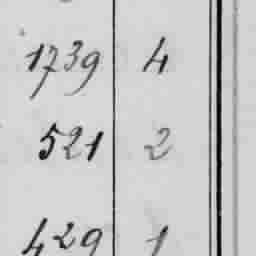 1739 4
521 2
429 1